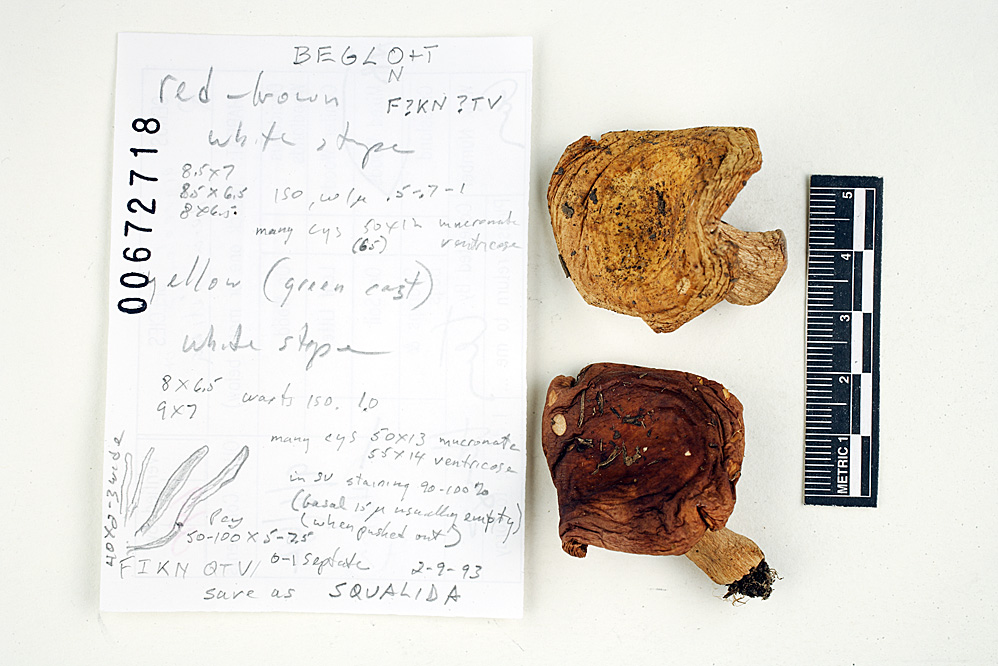 BEGLO+T
N
red-brown
F?KN?TV
white stype
8.5x7
8.5x6.5 ISO, w/µ .5-.7-1
8x6.5
many cys 50x12 mucronate
(65) ventricose
yellow (green cast)
white stype
8x6.5
9x7 warts ISO. 1.0
many cys 50x13 mucronate
55x14 ventricose
in SV staining 90-100%
(basal 15µ usually empty)
(when pushed out)
40x2-3 wide
50-100x5-7.5
0-1 septate
FIKN QTV/ 2-9-93
save as SQUALIDA
00672718
METRIC 1 2 3 4 5